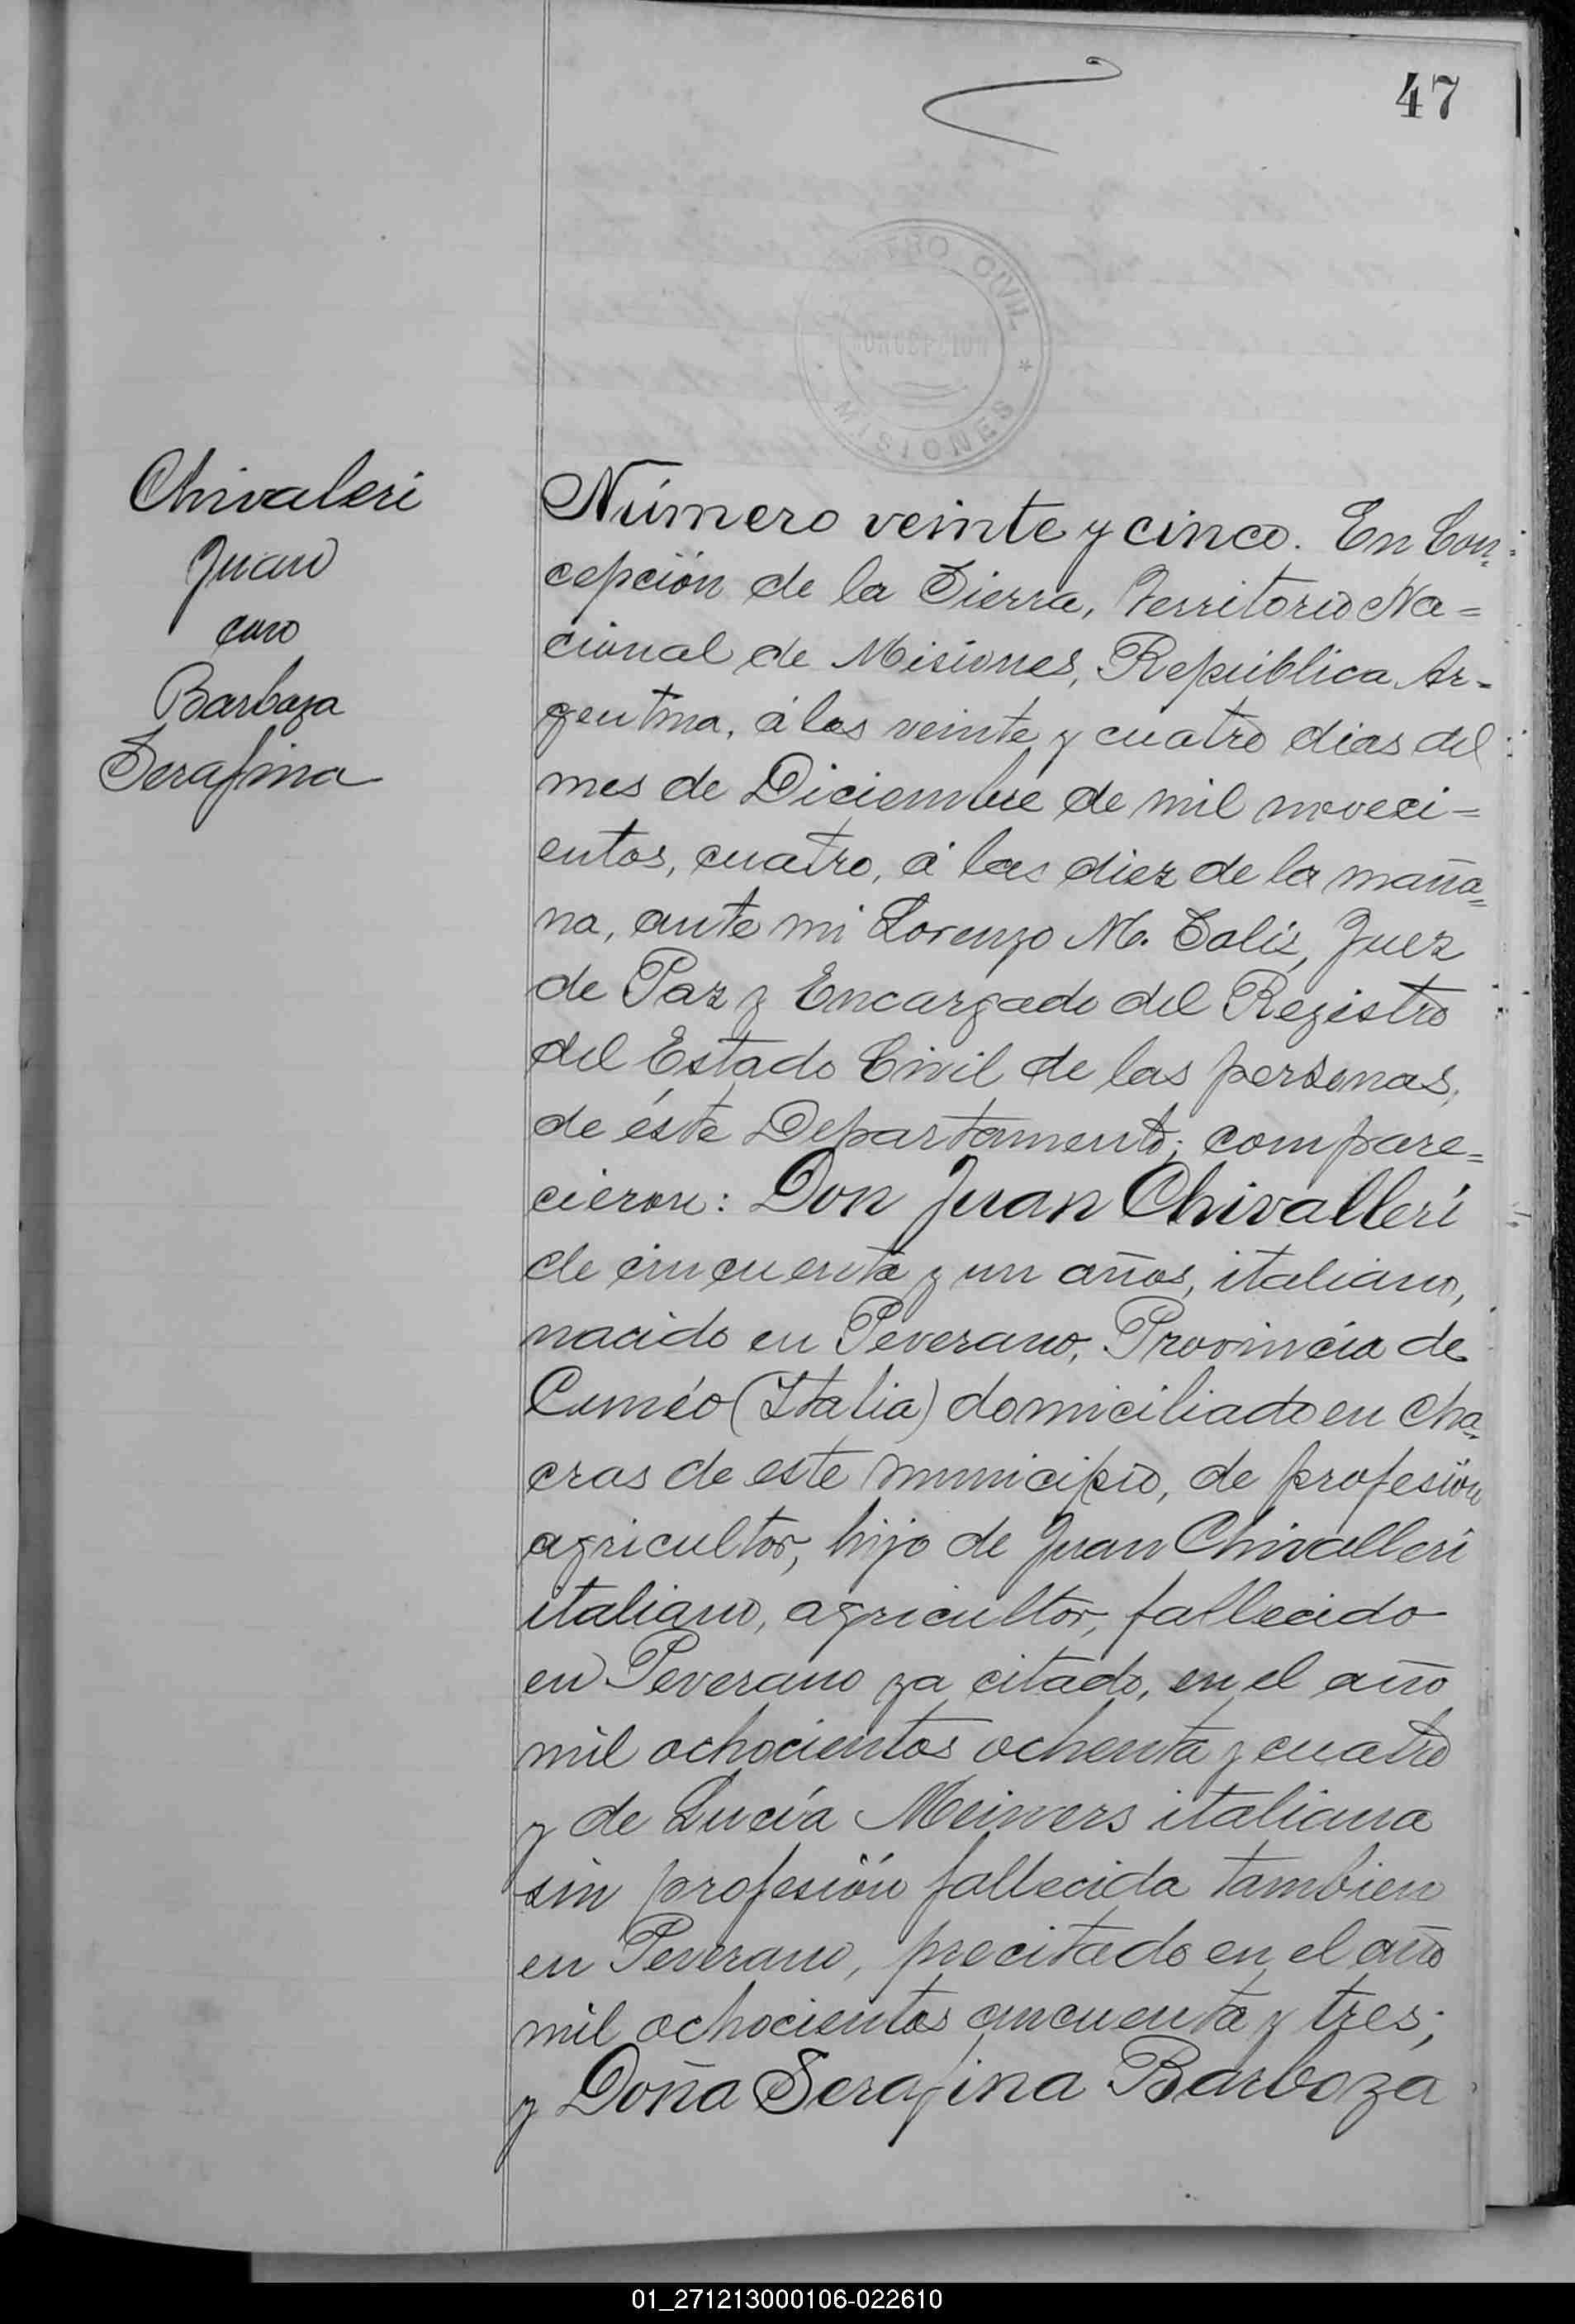 47
REGISTRO CIVIL
CONCEPCION
* MISIONES
Chivaleri
Juan
con
Barboza
Serafina
Número veinte y cinco. En Con=
cepción de la Sierra, Territorio Na=
cional de Misiones, República Ar-
gentina, á los veinte y cuatro dias del
mes de Diciembre de mil noveci=
entos, cuatro, á las diez de la maña=
na, ante mi Lorenzo M. Solis, Juez
de Paz y Encargado del Registro
del Estado Civil de las personas,
de éste Departamento; compare=
cieron: Don Juan Chivalleri
de cincuenta y un años, italiano,
nacido en Peverano, Provincia de
Cunéo (Italia) domiciliado en cha=
cras de este municipio, de profesión
agricultor, hijo de Juan Chivalleri
italiano, agricultor, fallecido
en Peverano ya citado, en el año
mil ochocientos ochenta y cuatro
y de Lucía Meiners italiana
sin profesión fallecida tambien
en Peverano, precitado en el año
mil ochocientos cincuenta y tres;
y Doña Serafina Barboza
01_271213000106-022610